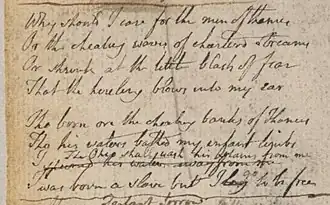 Why should I care for the men of thames
Or the cheating waves of charterd streams
Or shrink at the little blasts of fear
That the hireling blows into my ear
Tho born on the cheating banks of Thames
Tho his waters bathed my infant limbs
The Ohio shall wash his stains from me
I spurnd his waters away from me
I was born a slave but I go to be free